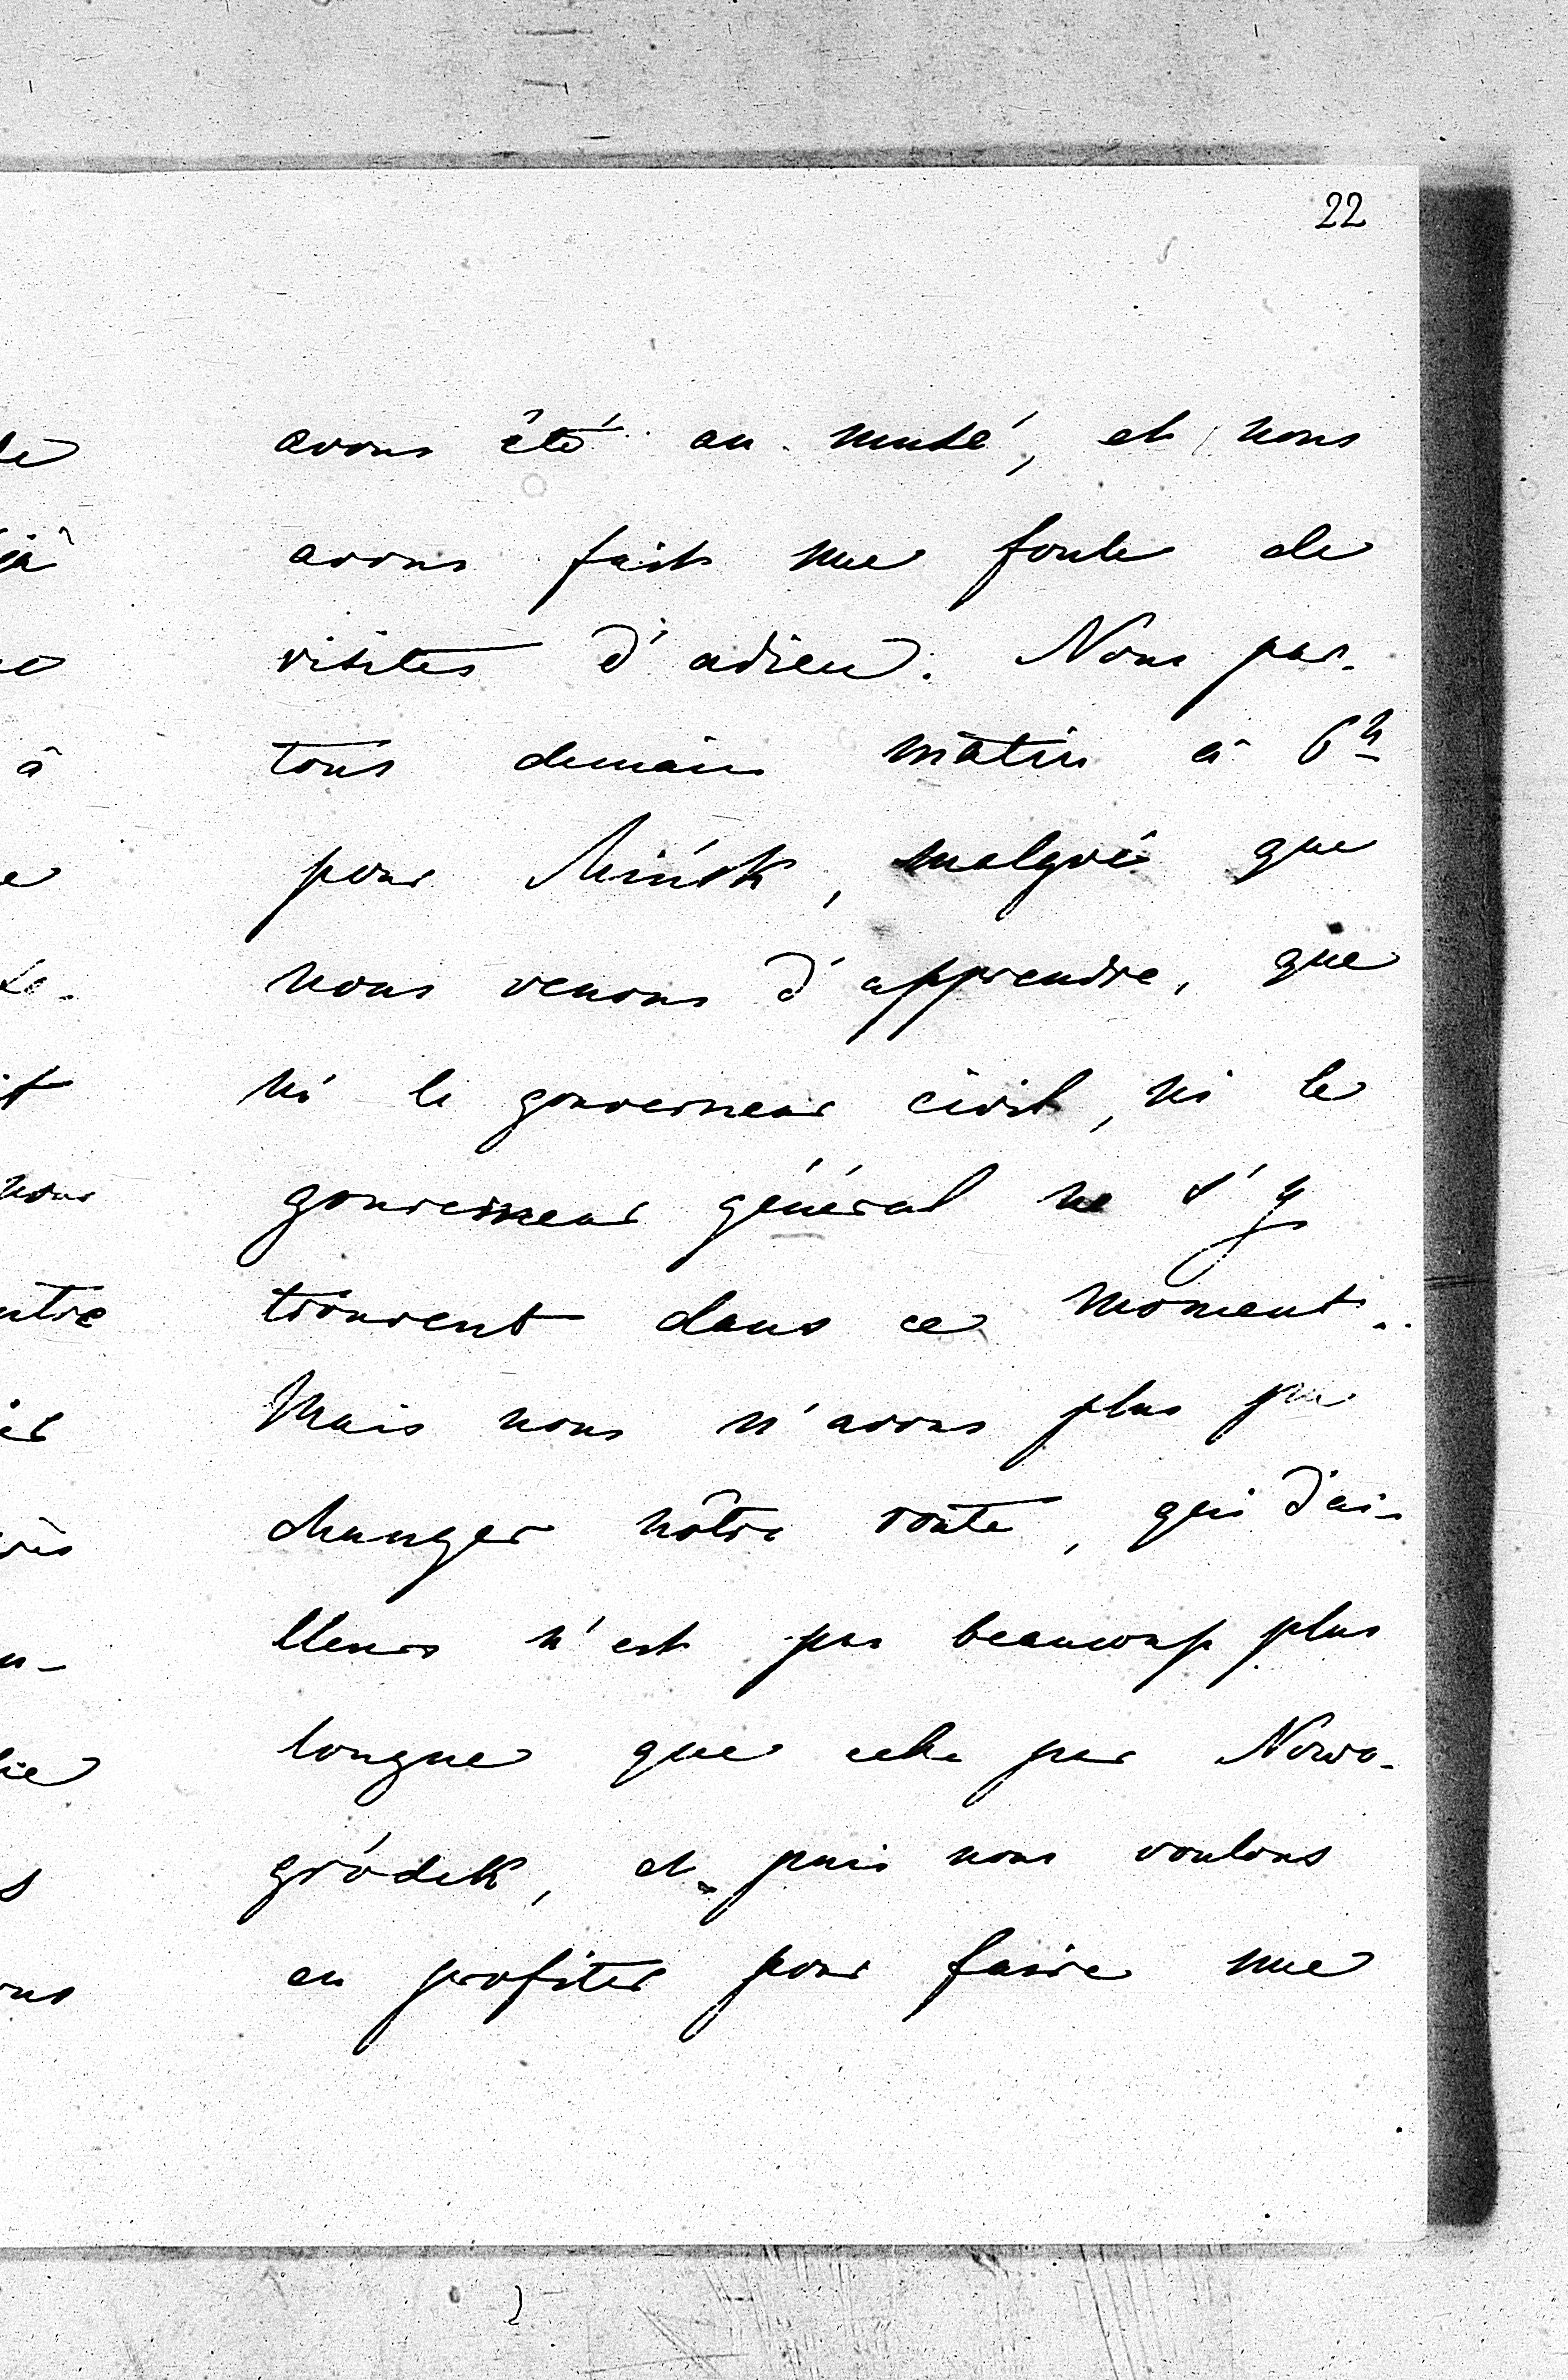 22
avons été au musé, et nous
avons fait une foule de
visites d'adieu. Nous par-
tons demain matin à 6h
pour Mińsk, malgré que
nous venons d'apprendre, que
ni le gouverneur civil, ni le
gouverneur général ne s'y
trouvent dans ce moment.
Mais nous n'avons plus pu
changer nôtre route, qui d'ai-
lleurs n'est pas beaucoup plus
longue que celle par Nowo-
gródek, et puis nous voulons
en profiter pour faire une